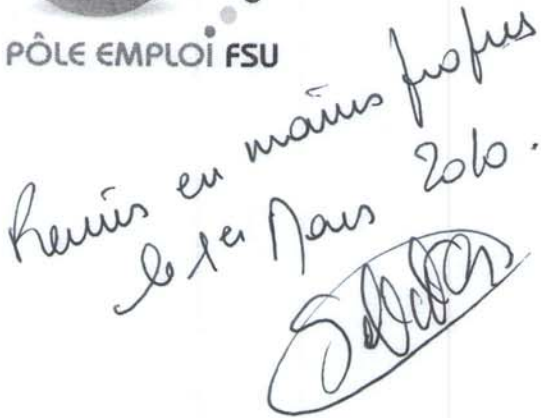 PÔLE EMPLOI FSU
Remis en mains propres
le 1er Mars 2010.